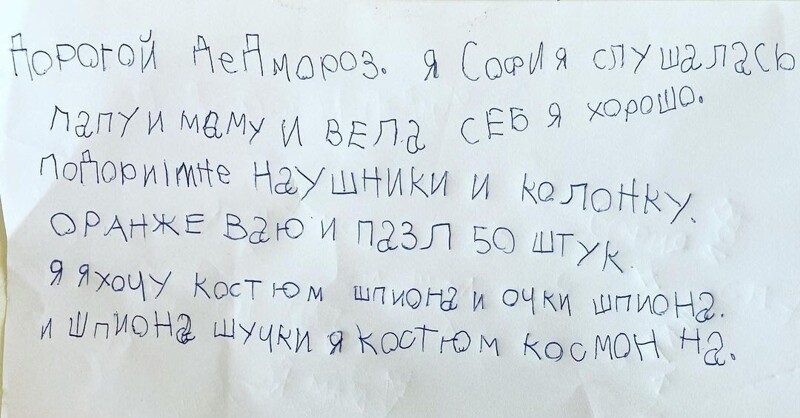 ДОРОГОЙ ДЕДМОРОЗ. Я СОФИЯ СЛУШАЛАСЬ
ПАПУ И МАМУ И ВЕЛА СЕБЯ ХОРОШО.
ПОДОРИ МНЕ НАУШНИКИ И КОЛОНКУ.
ОРАНЖЕВАЮ И ПАЗЛ 50 ШТУК.
Я ЯХОЧУ КОСТЮМ ШПИОНА И ОЧКИ ШПИОНА.
И ШПИОНА ШУЧКИ Я КОСТЮМ КОСМОННА.